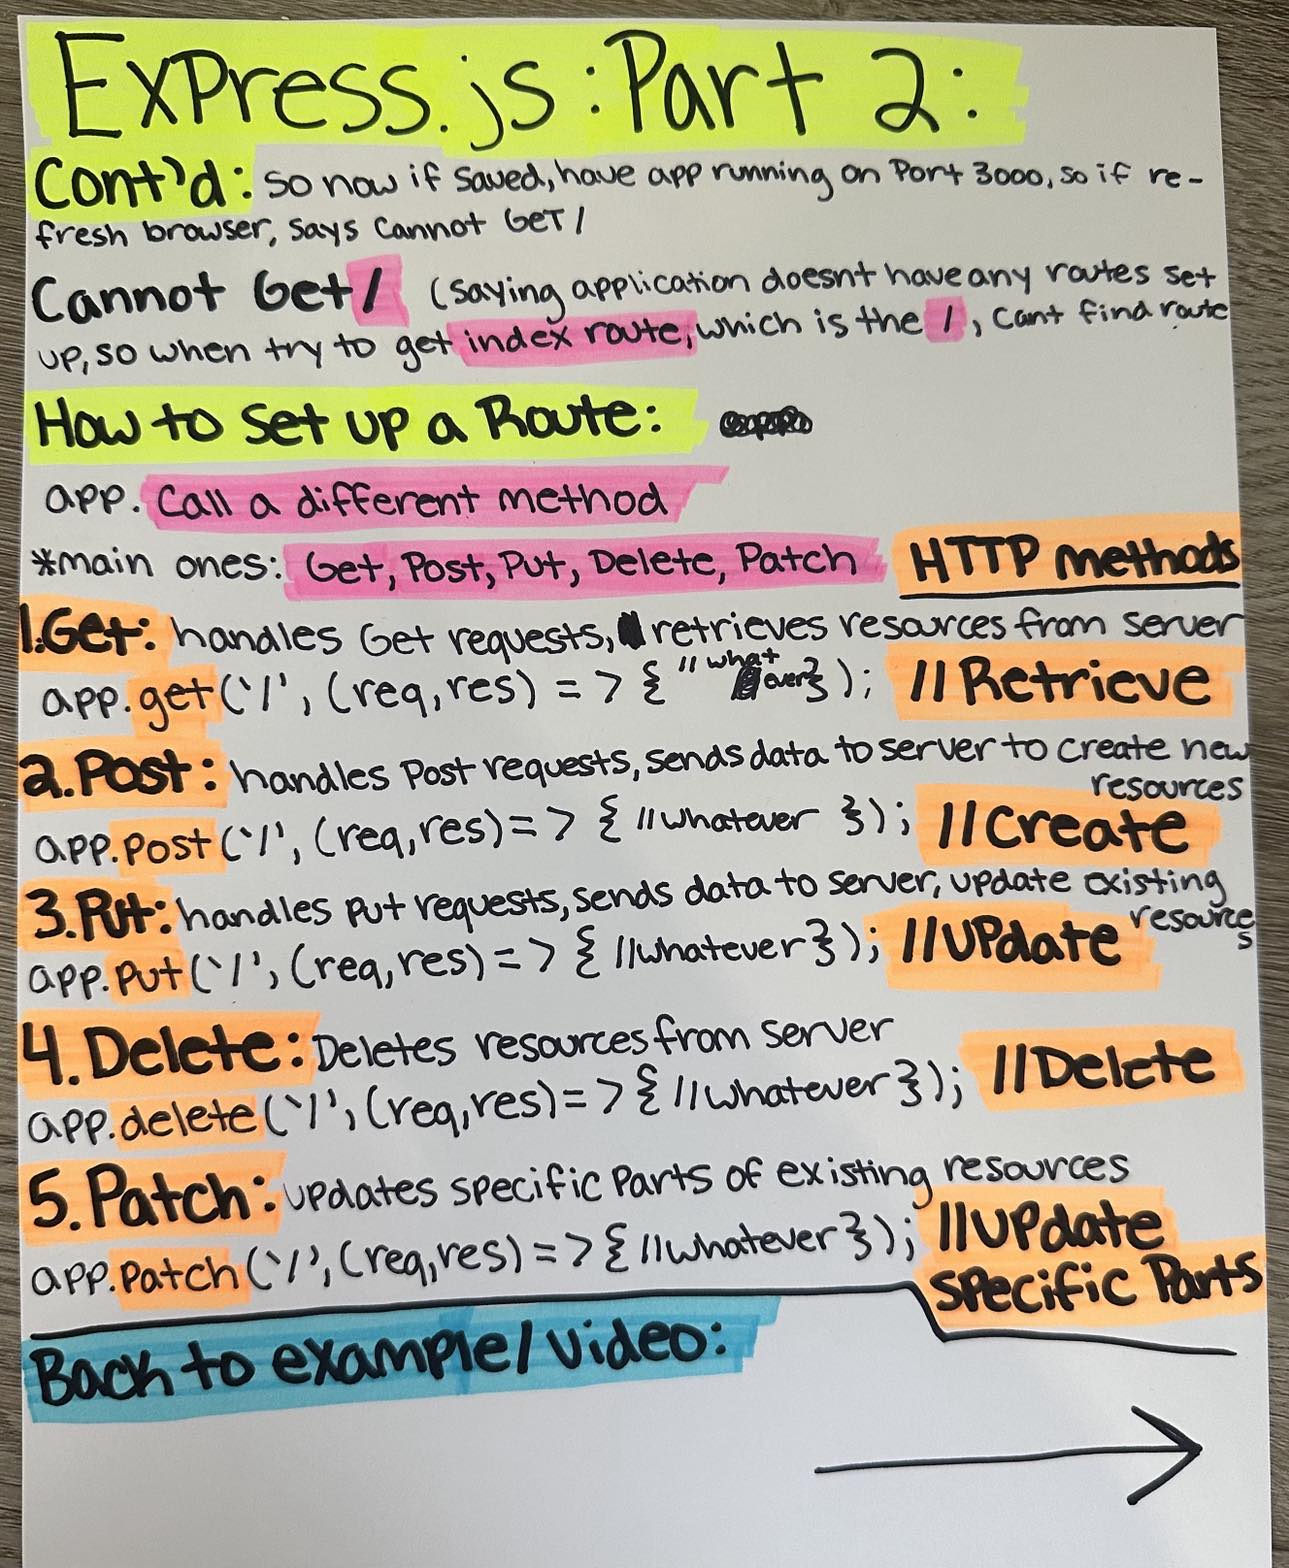 Express.js: Part 2:
Cont'd: so now if saved, have app running on Port 3000, so if re-
fresh browser, says Cannot GET /
Cannot Get / (saying application doesnt have any routes set
up, so when try to get index route, which is the /, cant find route
How to Set up a Route:
app. Call a different method
*main ones: Get, Post, Put, Delete, Patch HTTP methods
1. Get: handles Get requests, retrieves resources from server
app.get('/', (req, res) => { "//whatever}); //Retrieve
2. Post: handles Post requests, sends data to server to create new
resources
app.Post('/', (req, res) => { //whatever }); //Create
3. Put: handles put requests, sends data to server, update existing
resources
app.put('/', (req, res) => { //whatever}); //Update
4. Delete: Deletes resources from server
app.delete('/', (req, res) => { //whatever}); //Delete
5. Patch: updates specific Parts of existing resources
app.patch('/', (req, res) => { //whatever}); //Update
Specific Parts
Back to example/video: